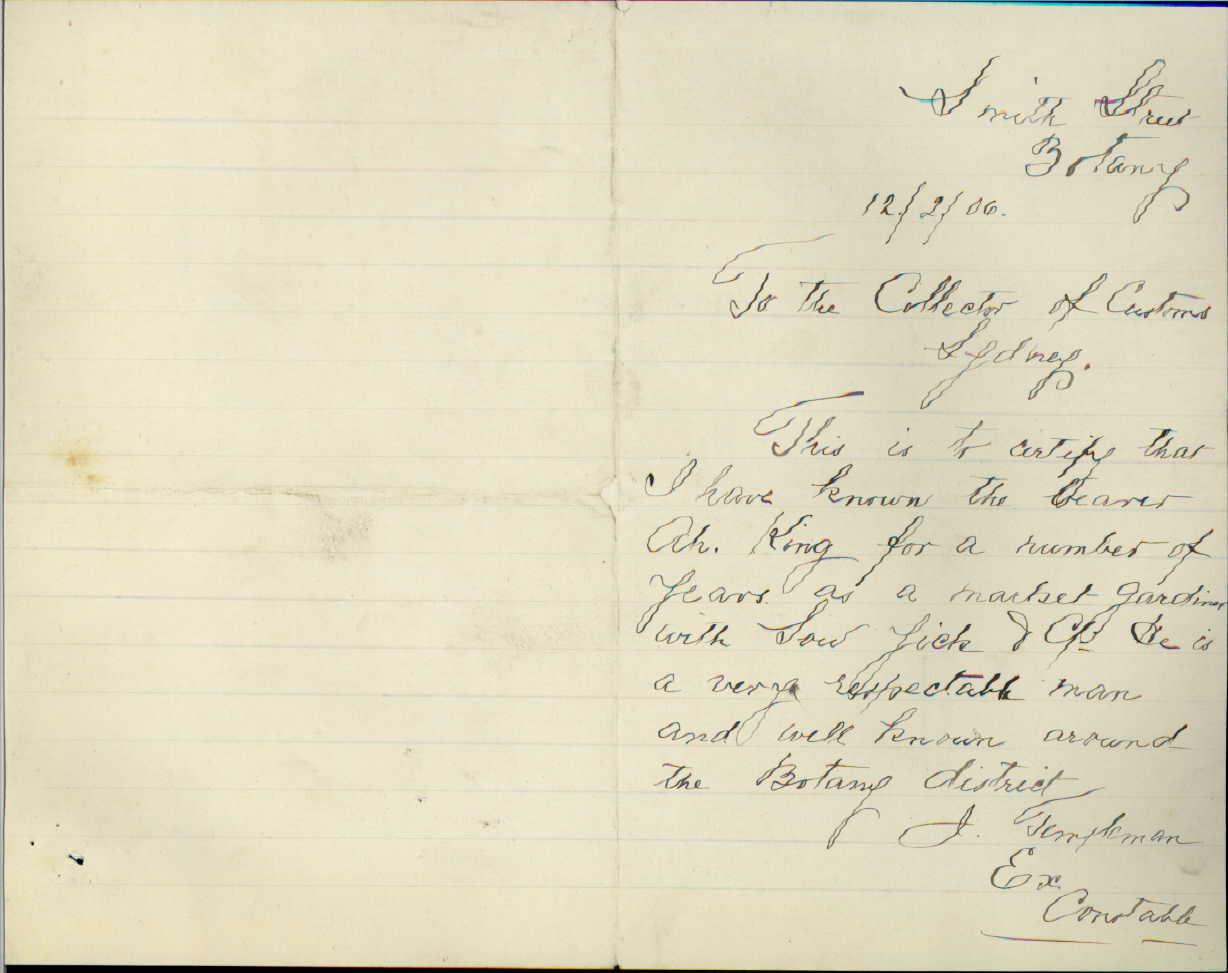 Smith Street
Botany
12/2/06.
To the Collector of Customs
Sydney.
This is to certify that
I have known the bearer
Ah. King for a number of
years as a market gardiner
with Sow Yick & Co He is
a very respectable man
and well known around
the Botany district
J. Templeman
Ex.
Constable